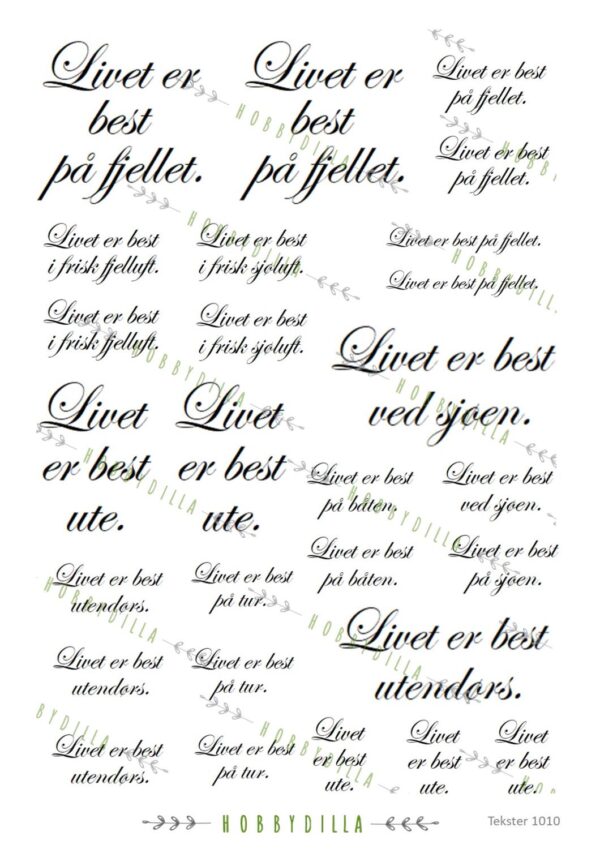 Livet er
best
på fjellet.
Livet er
best
på fjellet.
Livet er best
på fjellet.
Livet er best
på fjellet.
Livet er best
i frisk fjelluft.
Livet er best
i frisk sjøluft.
Livet er best på fjellet.
Livet er best på fjellet.
Livet er best
i frisk fjelluft.
Livet er best
i frisk sjøluft.
Livet er best
ved sjøen.
Livet
er best
ute.
Livet
er best
ute.
Livet er best
på båten.
Livet er best
ved sjøen.
Livet er best
på båten.
Livet er best
på sjøen.
Livet er best
utendørs.
Livet er best
på tur.
Livet er best
utendørs.
Livet er best
utendørs.
Livet er best
på tur.
Livet er best
utendørs.
Livet er best
på tur.
Livet
er best
ute.
Livet
er best
ute.
Livet
er best
ute.
HOBBYDILLA
Tekster 1010